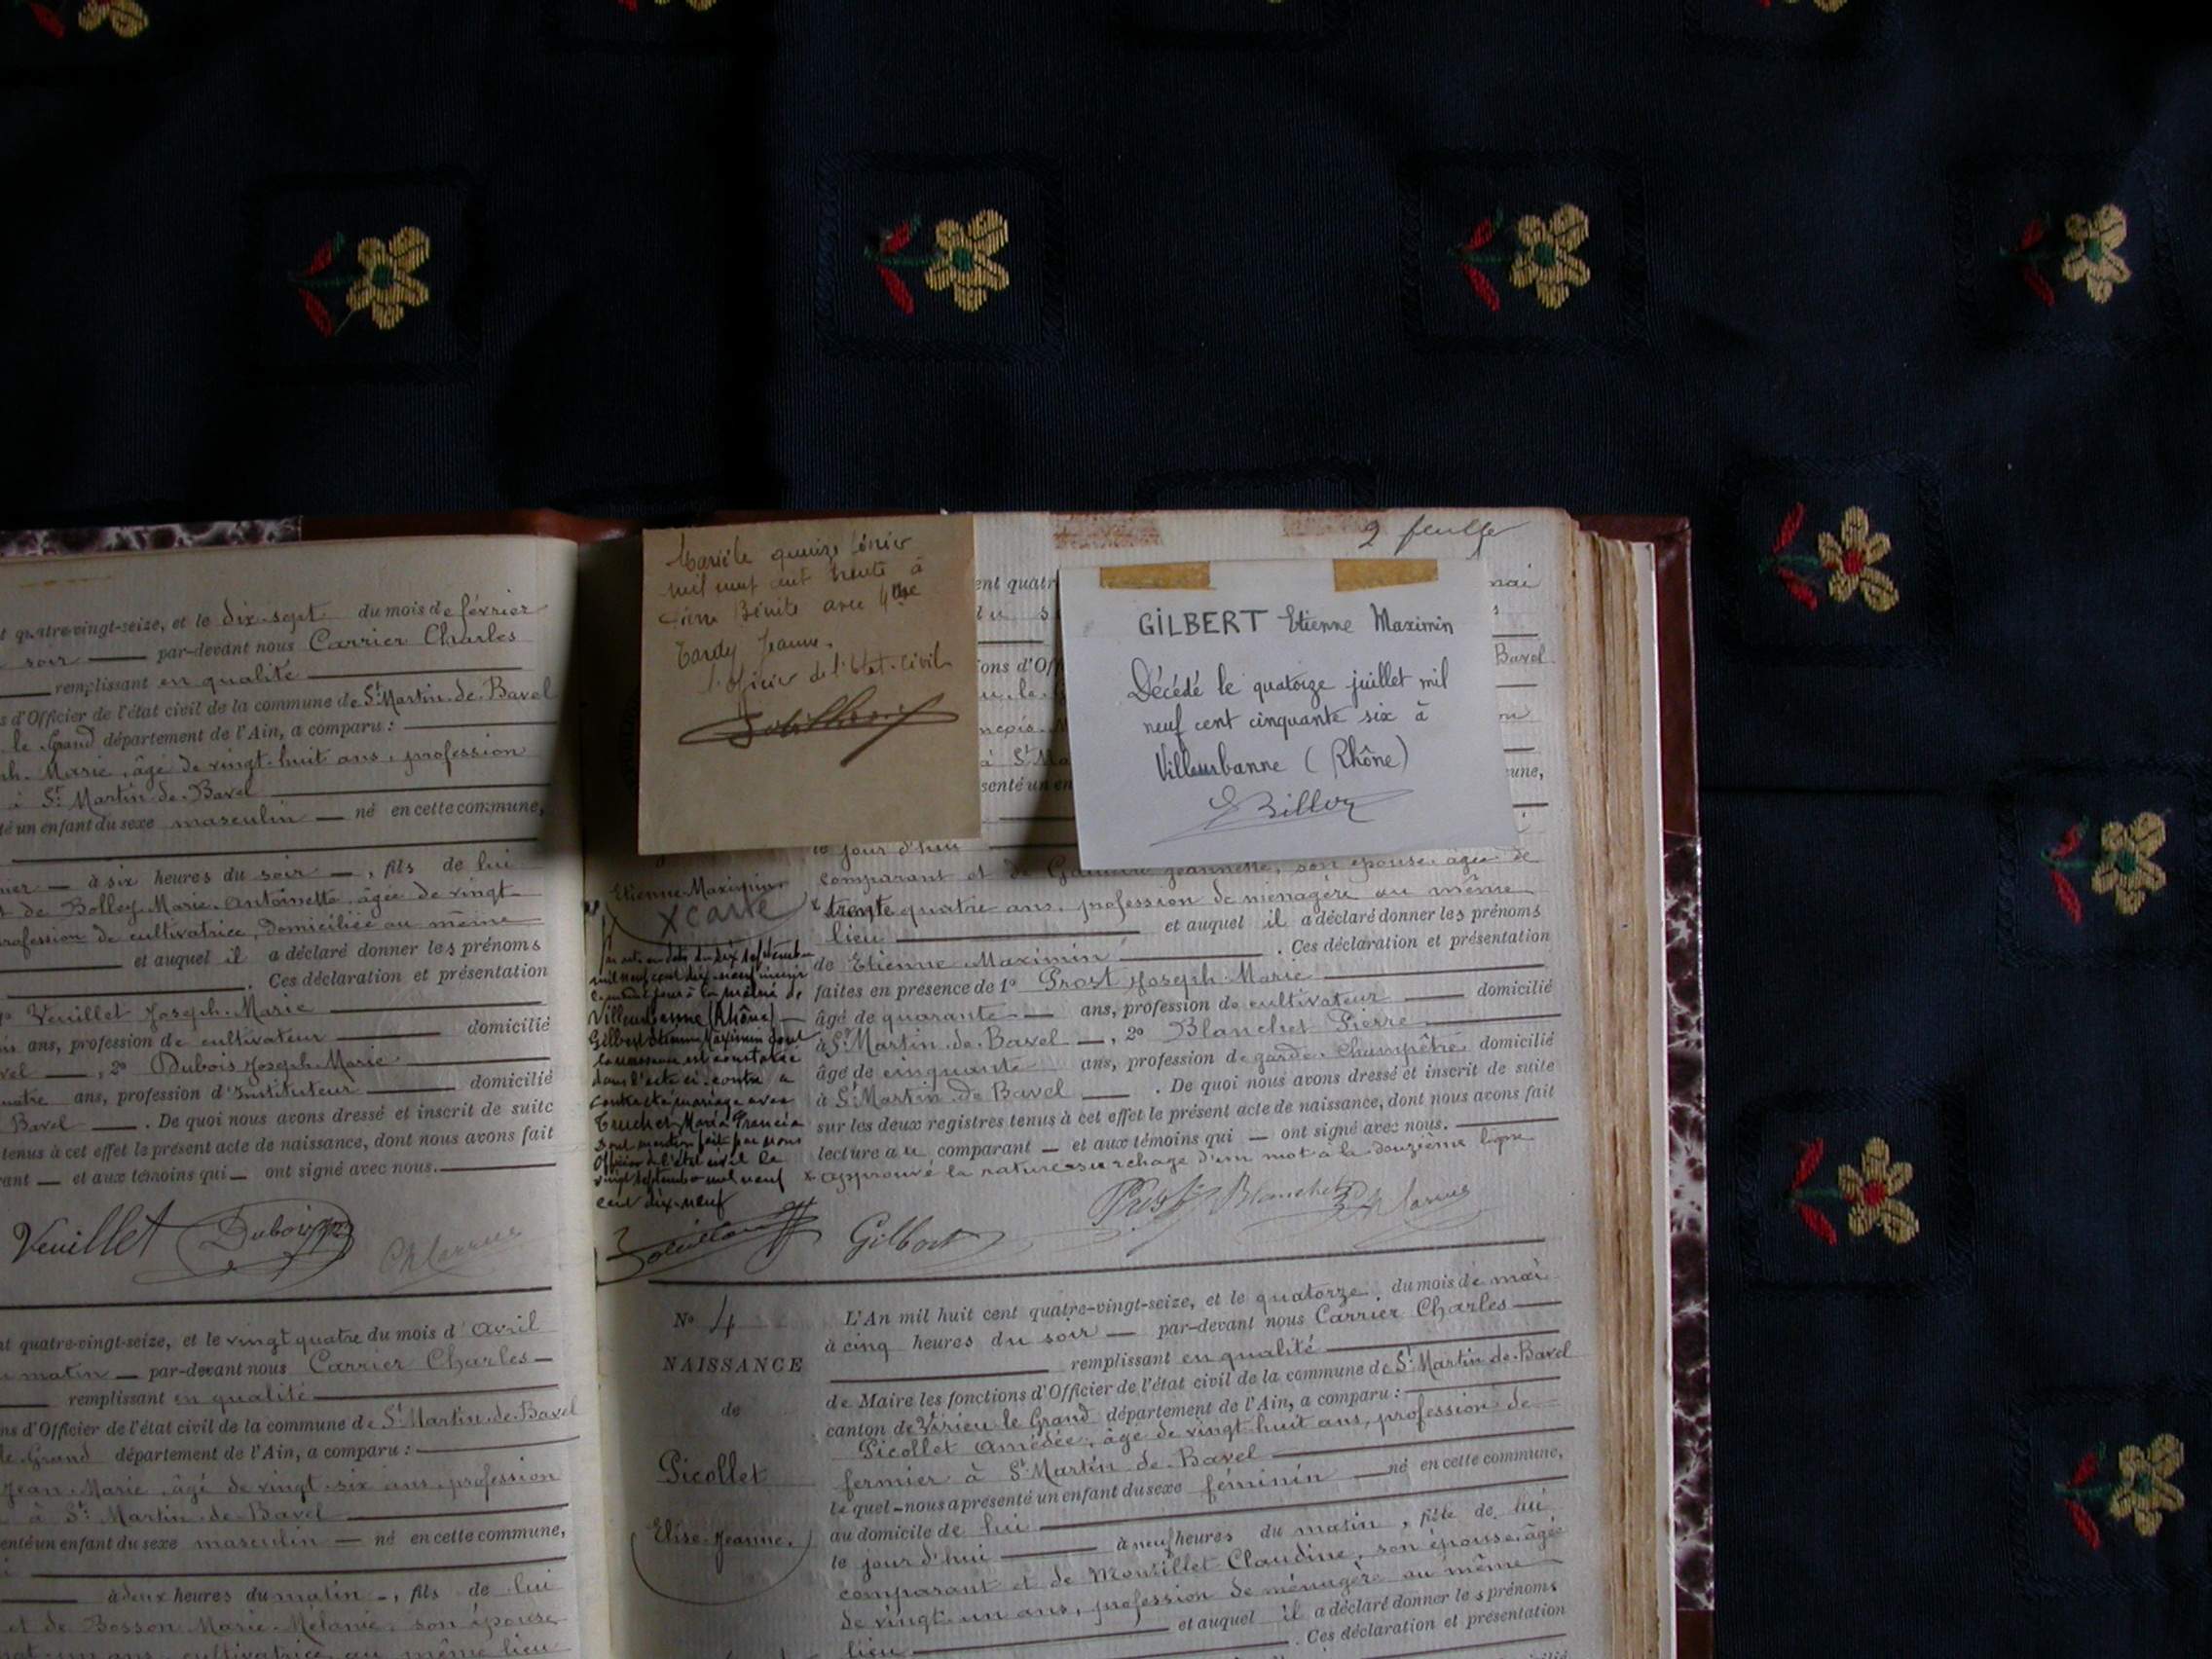 t quatre-vingt-seize, et le dix-sept du mois de février
soir — par-devant nous Carrier Charles
remplissant en qualité
s d'Officier de l'état civil de la commune de St Martin-de-Bavel
le Grand département de l'Ain, a comparu :
ph. Marie, âgé de vingt-huit ans, profession
à St Martin-de-Bavel
té un enfant du sexe masculin — né en cette commune,
à six heures du soir —, fils de lui
de Bolley Marie-Antoinette, âgée de vingt-
profession de cultivatrice, domiciliée au même
et auquel il a déclaré donner les prénoms
. Ces déclaration et présentation
1º Veuillet Joseph-Marie
ans, profession de cultivateur — domicilié
vel —, 2º Dubois Joseph-Marie
quatre ans, profession d'Instituteur — domicilié
Bavel —. De quoi nous avons dressé et inscrit de suite
tenus à cet effet le présent acte de naissance, dont nous avons fait
rant — et aux témoins qui — ont signé avec nous.
Veuillet Dubois
nt quatre-vingt-seize, et le vingt quatre du mois d'Avril
matin — par-devant nous Carrier Charles —
remplissant en qualité
ns d'Officier de l'état civil de la commune de St Martin-de-Bavel
le Grand département de l'Ain, a comparu :
Jean-Marie, âgé de vingt-six ans, profession
à St Martin-de-Bavel
enté un enfant du sexe masculin — né en cette commune,
à deux heures du matin -, fils de lui
et de Bosson Marie-Mélanie, son épouse
ans, cultivatrice au même lieu
Marié le quinze
mil neuf cent trente à
Pierre Bénite avec
Tardy Jeanne.
l'officier de l'état-civil
2 feuille
GILBERT Etienne Maximin
Décédé le quatorze juillet mil
neuf cent cinquante six à
Villeurbanne (Rhône)
Billon
ent quatr
mai
du s
ons d'Off
Bavel
à St Ma
senté un en
une,
le jour d'hui
comparant et de Jeannette, son épouse âgée de
Etienne-Maximin
x carte
x trente quatre ans, profession de ménagère au même
lieu — et auquel il a déclaré donner les prénoms
de Etienne Maximin — . Ces déclaration et présentation
faites en présence de 1º Prost Joseph-Marie
âgé de quarante — ans, profession de cultivateur — domicilié
à St Martin-de-Bavel —, 2º Blanchet Pierre
âgé de cinquante ans, profession de garde-champêtre domicilié
à St Martin-de-Bavel — . De quoi nous avons dressé et inscrit de suite
sur les deux registres tenus à cet effet le présent acte de naissance, dont nous avons fait
lecture au comparant — et aux témoins qui — ont signé avec nous.
x approuvé la rature surchage d'un mot à la douzième ligne
Par acte en date du dix septembre
mil neuf cent dix-neuf
à la mairie de
Villeurbanne (Rhône) —
Gilbert Etienne Maximin dont
la naissance est constatée
dans l'acte ci-contre a
contracté mariage avec
Maria Francia
Dont mention fait par nous
Officier de l'état civil le
vingt septembre mil neuf
cent dix-neuf
Gilbert Prost Blanchet
Nº 4
NAISSANCE
de
Picollet
Elise-Jeanne.
L'An mil huit cent quatre-vingt-seize, et le quatorze du mois de mai
à cinq heures du soir — par-devant nous Carrier Charles —
remplissant en qualité
de Maire les fonctions d'Officier de l'état civil de la commune de St Martin-de-Bavel
canton de Virieu le Grand département de l'Ain, a comparu :
Picollet Amédée, âgé de vingt huit ans, profession de
fermier à St Martin-de-Bavel
le quel nous a présenté un enfant du sexe féminin — né en cette commune,
au domicile de lui
le jour d'hui — à neuf heures du matin, fille de lui
comparant et de Claudine, son épouse, âgée
de vingt-un ans, profession de ménagère au même
lieu — et auquel il a déclaré donner les prénoms
. Ces déclaration et présentation